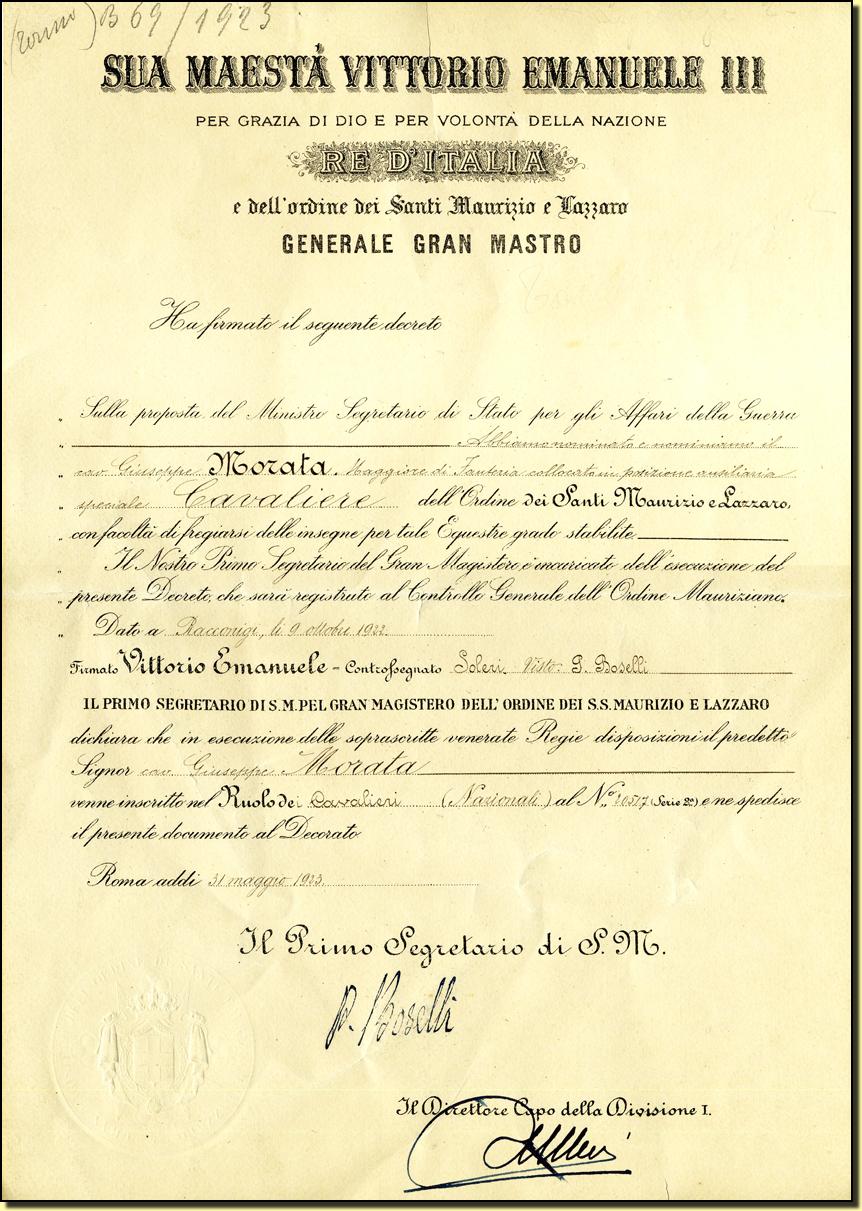 (torino) B 69/1923
SUA MAESTÀ VITTORIO EMANUELE III
PER GRAZIA DI DIO E PER VOLONTÀ DELLA NAZIONE
RE D'ITALIA
e dell'ordine dei Santi Maurizio e Lazzaro
GENERALE GRAN MASTRO
Ha firmato il seguente decreto
„ Sulla proposta del Ministro Segretario di Stato per gli Affari della Guerra
„ Abbiamo nominato e nominiamo il
„ cav Giuseppe Morata. Maggiore di Fanteria collocato in posizione ausiliaria
„ speciale Cavaliere dell'Ordine dei Santi Maurizio e Lazzaro,
„ con facoltà di fregiarsi delle insegne per tale Equestre grado stabilite.
„ Il Nostro Primo Segretario del Gran Magistero, è incaricato dell'esecuzione del
„ presente Decreto, che sarà registrato al Controllo Generale dell'Ordine Mauriziano.
„ Dato a Racconigi, li 9 ottobre 1922.
Firmato Vittorio Emanuele = Controssegnato Soleri. Visto. P. Boselli
IL PRIMO SEGRETARIO DI S. M. PEL GRAN MAGISTERO DELL'ORDINE DEI S.S. MAURIZIO E LAZZARO
dichiara che in esecuzione delle soprascritte venerate Regie disposizioni il predetto
Signor cav Giuseppe Morata
venne inscritto nel Ruolo dei Cavalieri (Nazionali) al N.º 20517 (Serie 2ª) e ne spedisce
il presente documento al Decorato
Roma addì 31 maggio 1923.
Il Primo Segretario di S. M.
P. Boselli
Il Direttore Capo della Divisione I.